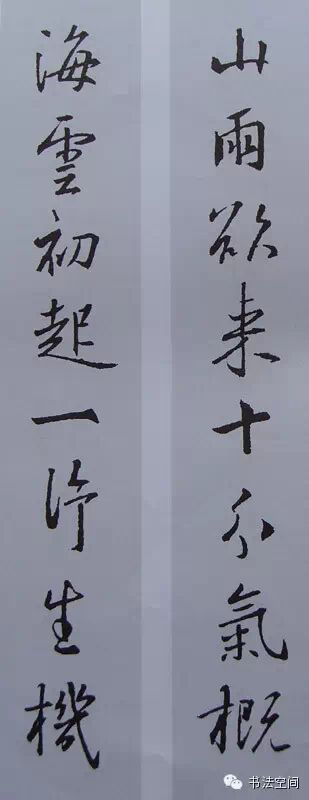 山雨欲来十分氣概
海雲初起一片生機
书法空间